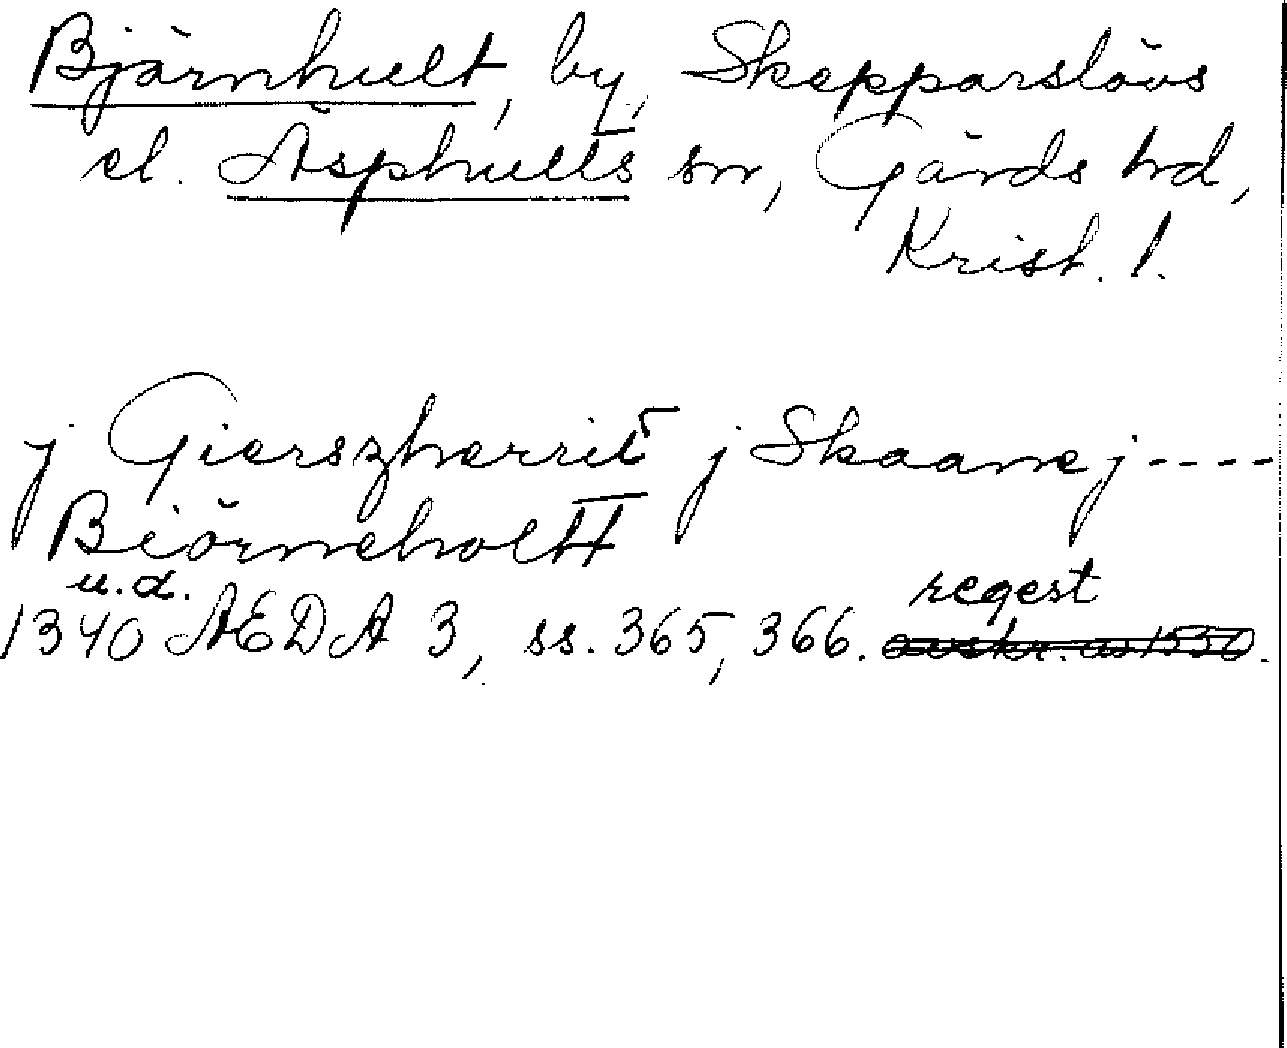 Bjärnhult, by, Skepparslövs
el. Äsphults sn, Gärds hd,
Krist. l.
j Gierszherrit j Skaanej ----
Biörneholtt
u.d.
regest
1340 ÆDA 3, ss. 365, 366. avskr. av 1550.